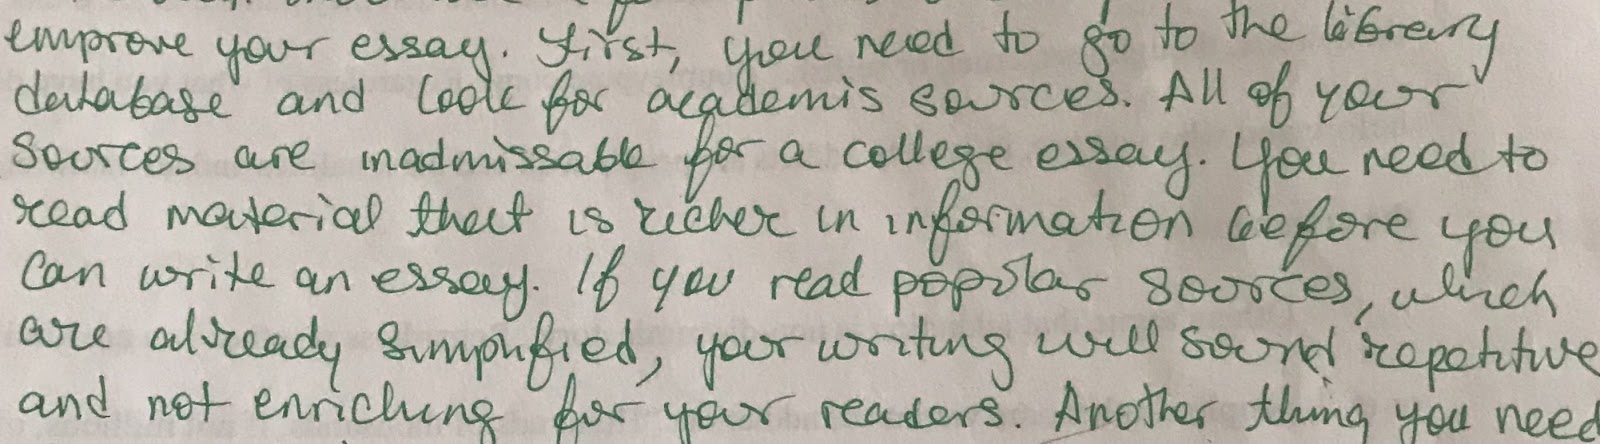 improve your essay. First, you need to go to the library
database and look for academis sources. All of your
sources are inadmissable for a college essay. You need to
read material that is richer in information before you
can write an essay. If you read popular sources, which
are already simplified, your writing will sound repetitive
and not enriching for your readers. Another thing you need